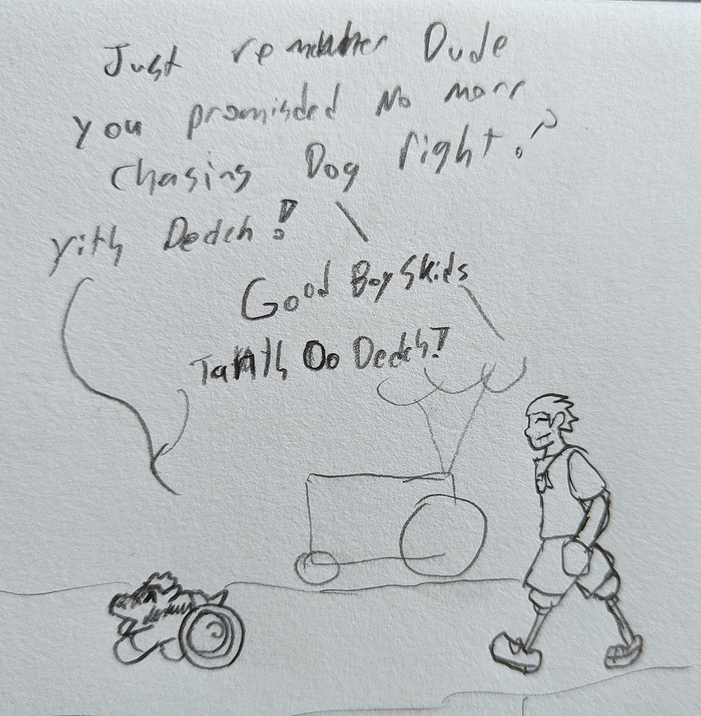 Just remember Dude
you promisded No more
chasing Dog right?
yith Dedch!
Good Boy Skids
Tanth Oo Dedch!